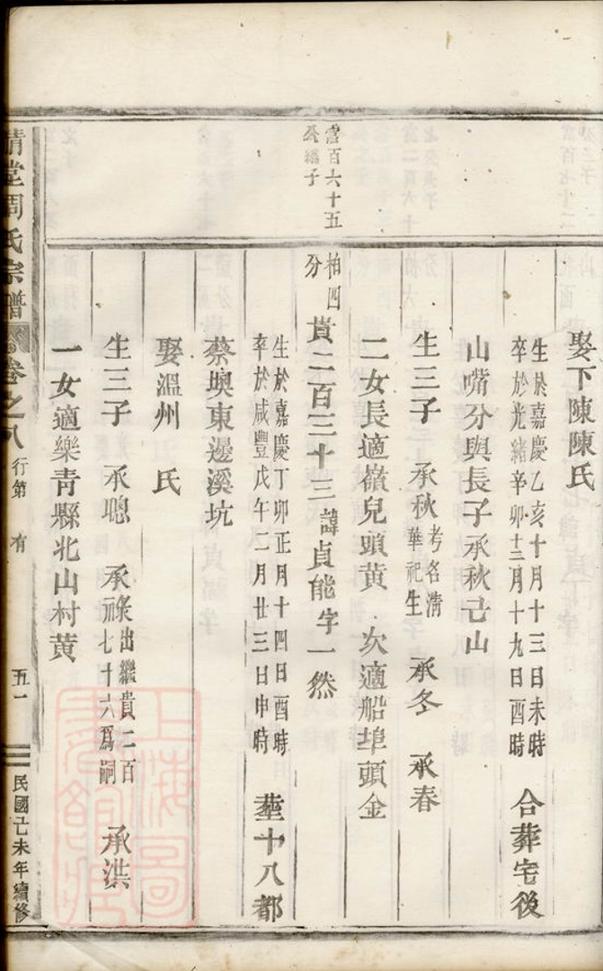 娶下陳陳氏
生於嘉慶乙亥十月十三日未時
卒於光緒辛卯十二月十九日酉時
合葬宅後
山嘴分與長子承秋㠯山
生三子 承秋 考名清華祀生 承冬 承春
二女長適嶺兒頭黄 次適船埠頭金
富百六十五
公繼子
柏四
分
貴二百三十三 諱貞能字一然
生於嘉慶丁卯正月十四日酉時
卒於咸豐戊午二月廿三日申時
葬十八都
蔡墺東邊溪坑
娶溫州 氏
生三子 承聰 承祿 出繼貴二百七十六爲嗣 承洪
一女適樂青縣北山村黄
清堂周氏宗譜
卷之八
行第 有
五一
民國己未年續修
上海圖書館藏